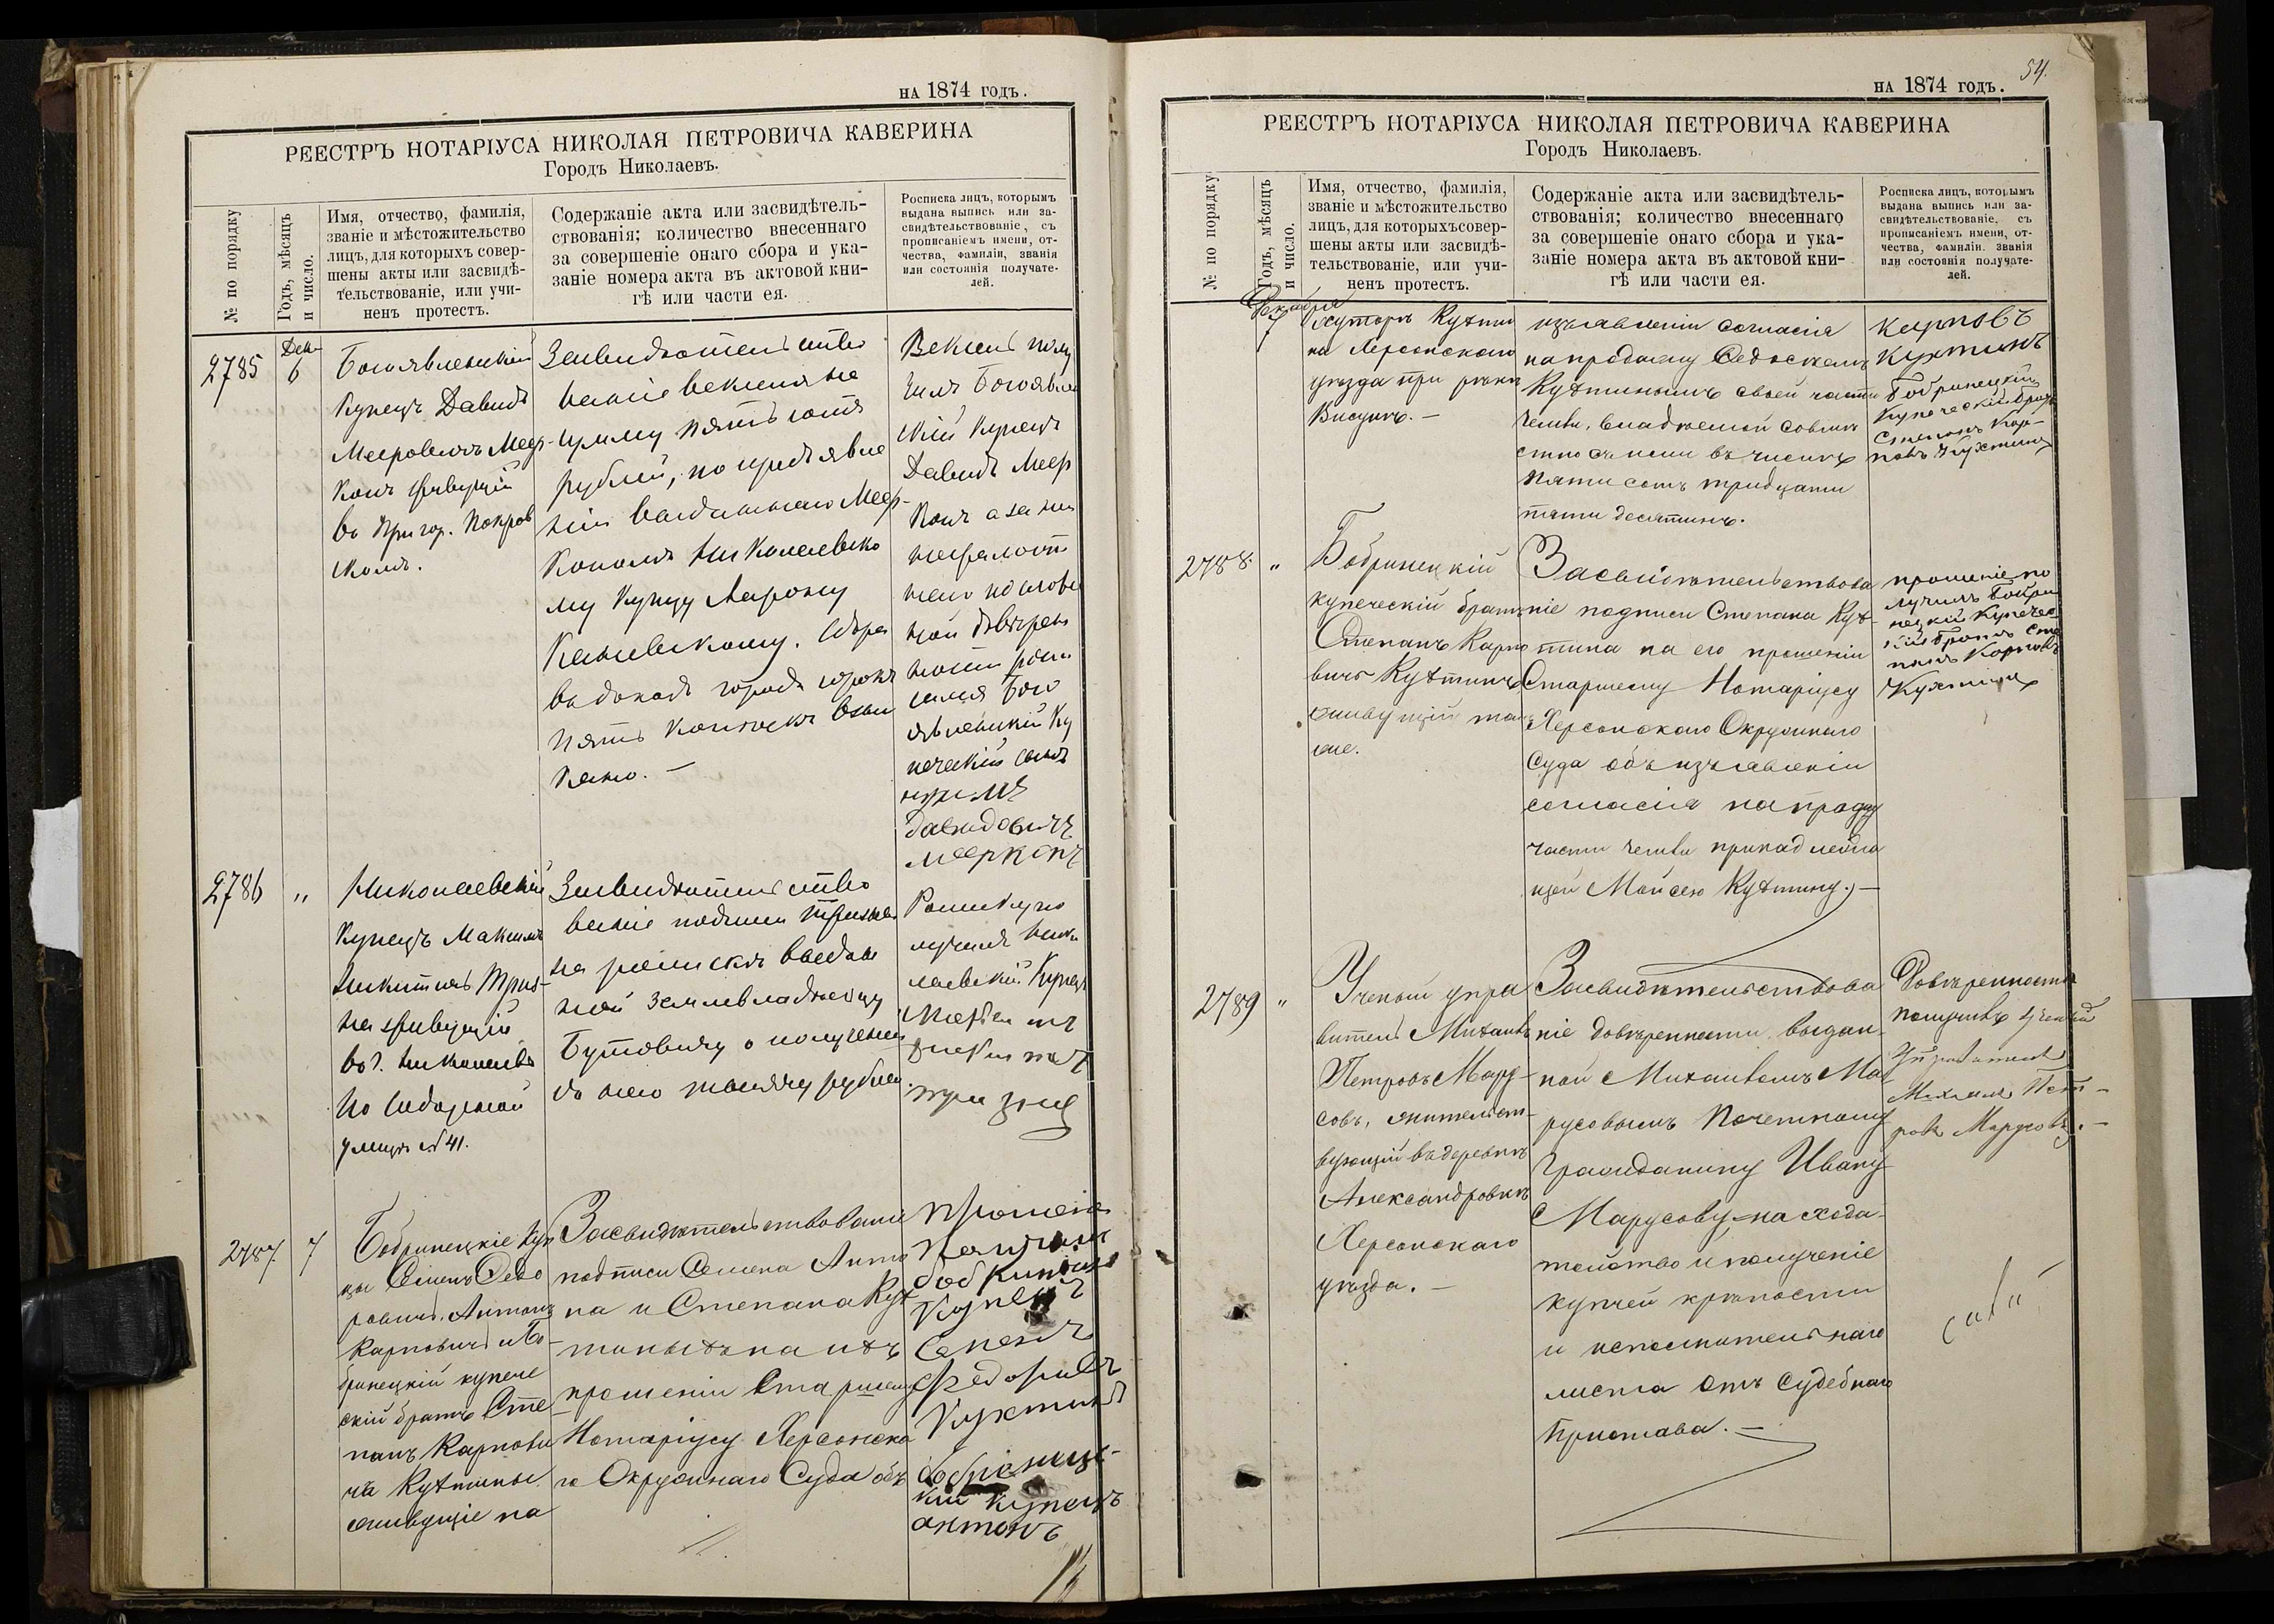 на 1874 годъ.
РЕЕСТРЪ НОТАРІУСА НИКОЛАЯ ПЕТРОВИЧА КАВЕРИНА
Городъ Николаевъ.
№ по порядку
Годъ, мѣсяцъ
и число.
Имя, отчество, фамилія,
званіе и мѣстожительство
лицъ, для которыхъ совер-
шены акты или засвидѣ-
тельствованіе, или учи-
ненъ протестъ.
Содержаніе акта или засвидѣтель-
ствованія; количество внесеннаго
за совершеніе онаго сбора и ука-
заніе номера акта въ актовой кни-
гѣ или части ея.
Росписка лицъ, которымъ
выдана выпись или за-
свидѣтельствованіе, съ
прописаніемъ имени, от-
чества, фамиліи, званія
или состоянія получате-
лей.
2785
Дек.
6
Богоявленскій
Купецъ Давидъ
Мееровичъ Меер-
конъ живущій
въ Пригор. Покров
скомъ.
Засвидѣтельство
ваніе векселя на
сумму пятьсотъ
рублей, по предъявле
ніи выданнаго Меер-
кономъ Николаевско
му Купцу Аарону
Каневскому. Сбора
въ доходъ города сорокъ
пять копѣекъ взы
скано. —
Вексель полу
чилъ Богоявлен
скій Купецъ
Давидъ Меер
конъ а за не
неграмотн
наго по слове
ной довѣрен
ности росп
исался Бого
явленскій Ку
печескій сынъ
давидовичъ
меерконъ
2786
"
Николаевскій
Купецъ Максимъ
Никитинъ Триз-
на живущій
въ г. Николаевѣ
по Соборной
улицѣ № 41.
Засвидѣтельство
ваніе подписи Тризны
на роспискѣ выдан
ной землевладѣльцу
Бутовичу о полученіи
съ него тысячу рублей.
Росписку по
лучилъ Нико
лаевскій Купецъ
Максимъ
Никитинъ
тризна
2787.
7
Бобринецкіе Куп
цы Семенъ Ѳедо
ровичъ, Антонъ
Карповичъ и Бо-
бринецкій купече
скій братъ Сте
панъ Карпови
ча Кухтины.
живущіе на
Засвидѣтельствованіе
подписи Семена Анто
на и Степана Кух
тиныхъ на ихъ
прошеніи Старшему
Нотаріусу Херсонска
го Окружнаго Суда объ
Прошеніе
получилъ
бобринецкій
Купецъ
Семенъ
Федоровичъ
Кухтинъ
бобринец-
кій купецъ
антонъ
на 1874 годъ.
54.
РЕЕСТРЪ НОТАРІУСА НИКОЛАЯ ПЕТРОВИЧА КАВЕРИНА
Городъ Николаевъ.
№ по порядку
Годъ, мѣсяцъ
и число.
Имя, отчество, фамилія,
званіе и мѣстожительство
лицъ, для которыхъ совер-
шены акты или засвидѣ-
тельствованіе, или учи-
ненъ протестъ.
Содержаніе акта или засвидѣтель-
ствованія; количество внесеннаго
за совершеніе онаго сбора и ука-
заніе номера акта въ актовой кни-
гѣ или части ея.
Росписка лицъ, которымъ
выдана выпись или за-
свидѣтельствованіе, съ
прописаніемъ имени, от-
чества, фамиліи, званія
или состоянія получате-
лей.
Декабря
7
хуторѣ Кухти
на Херсонскаго
уѣзда при рѣкѣ
Висунѣ. —
изъявленіи согласія
на продажу Ѳедосѣемъ
Кухтинымъ своей части
земли, владѣемой совмѣ
стно съ ними въ числѣ
пяти сотъ тридцати
пяти десятинъ.
карповъ
Кухтинъ
Бобринецкій
Купеческій братъ
Степанъ Кар-
повъ Кухтинъ
2788.
"
Бобринецкій
купеческій братъ
Степанъ Карпо
вичъ Кухтинъ
живущій тамъ
же.
Засвидѣтельствова
ніе подписи Степана Кух-
тина на его прошеніи
Старшему Нотаріусу
Херсонскаго Окружнаго
Суда объ изъявленіи
согласія на продажу
части земли принадлежа
щей Мойсею Кухтину. —
прошеніе по
лучилъ Бобри
нецкій Купечес
кій братъ Сте
панъ Карповъ
Кухтинъ
2789
"
Ученый упра
витель Михаилъ
Петровъ Мару-
совъ, жительст-
вующій въ деревнѣ
Александровкѣ
Херсонскаго
уѣзда. —
Засвидѣтельствова
ніе довѣренности, выдан-
ной Михаиломъ Ма
русовымъ Почетному
Гражданину Ивану
Марусову на хода-
тайство и полученіе
купчей крѣпости
и исполнительнаго
листа отъ Судебнаго
Пристава. —
Довѣренность
получилъ Ученый
Управитель
Михаилъ Пет-
ровъ Марусовъ. —